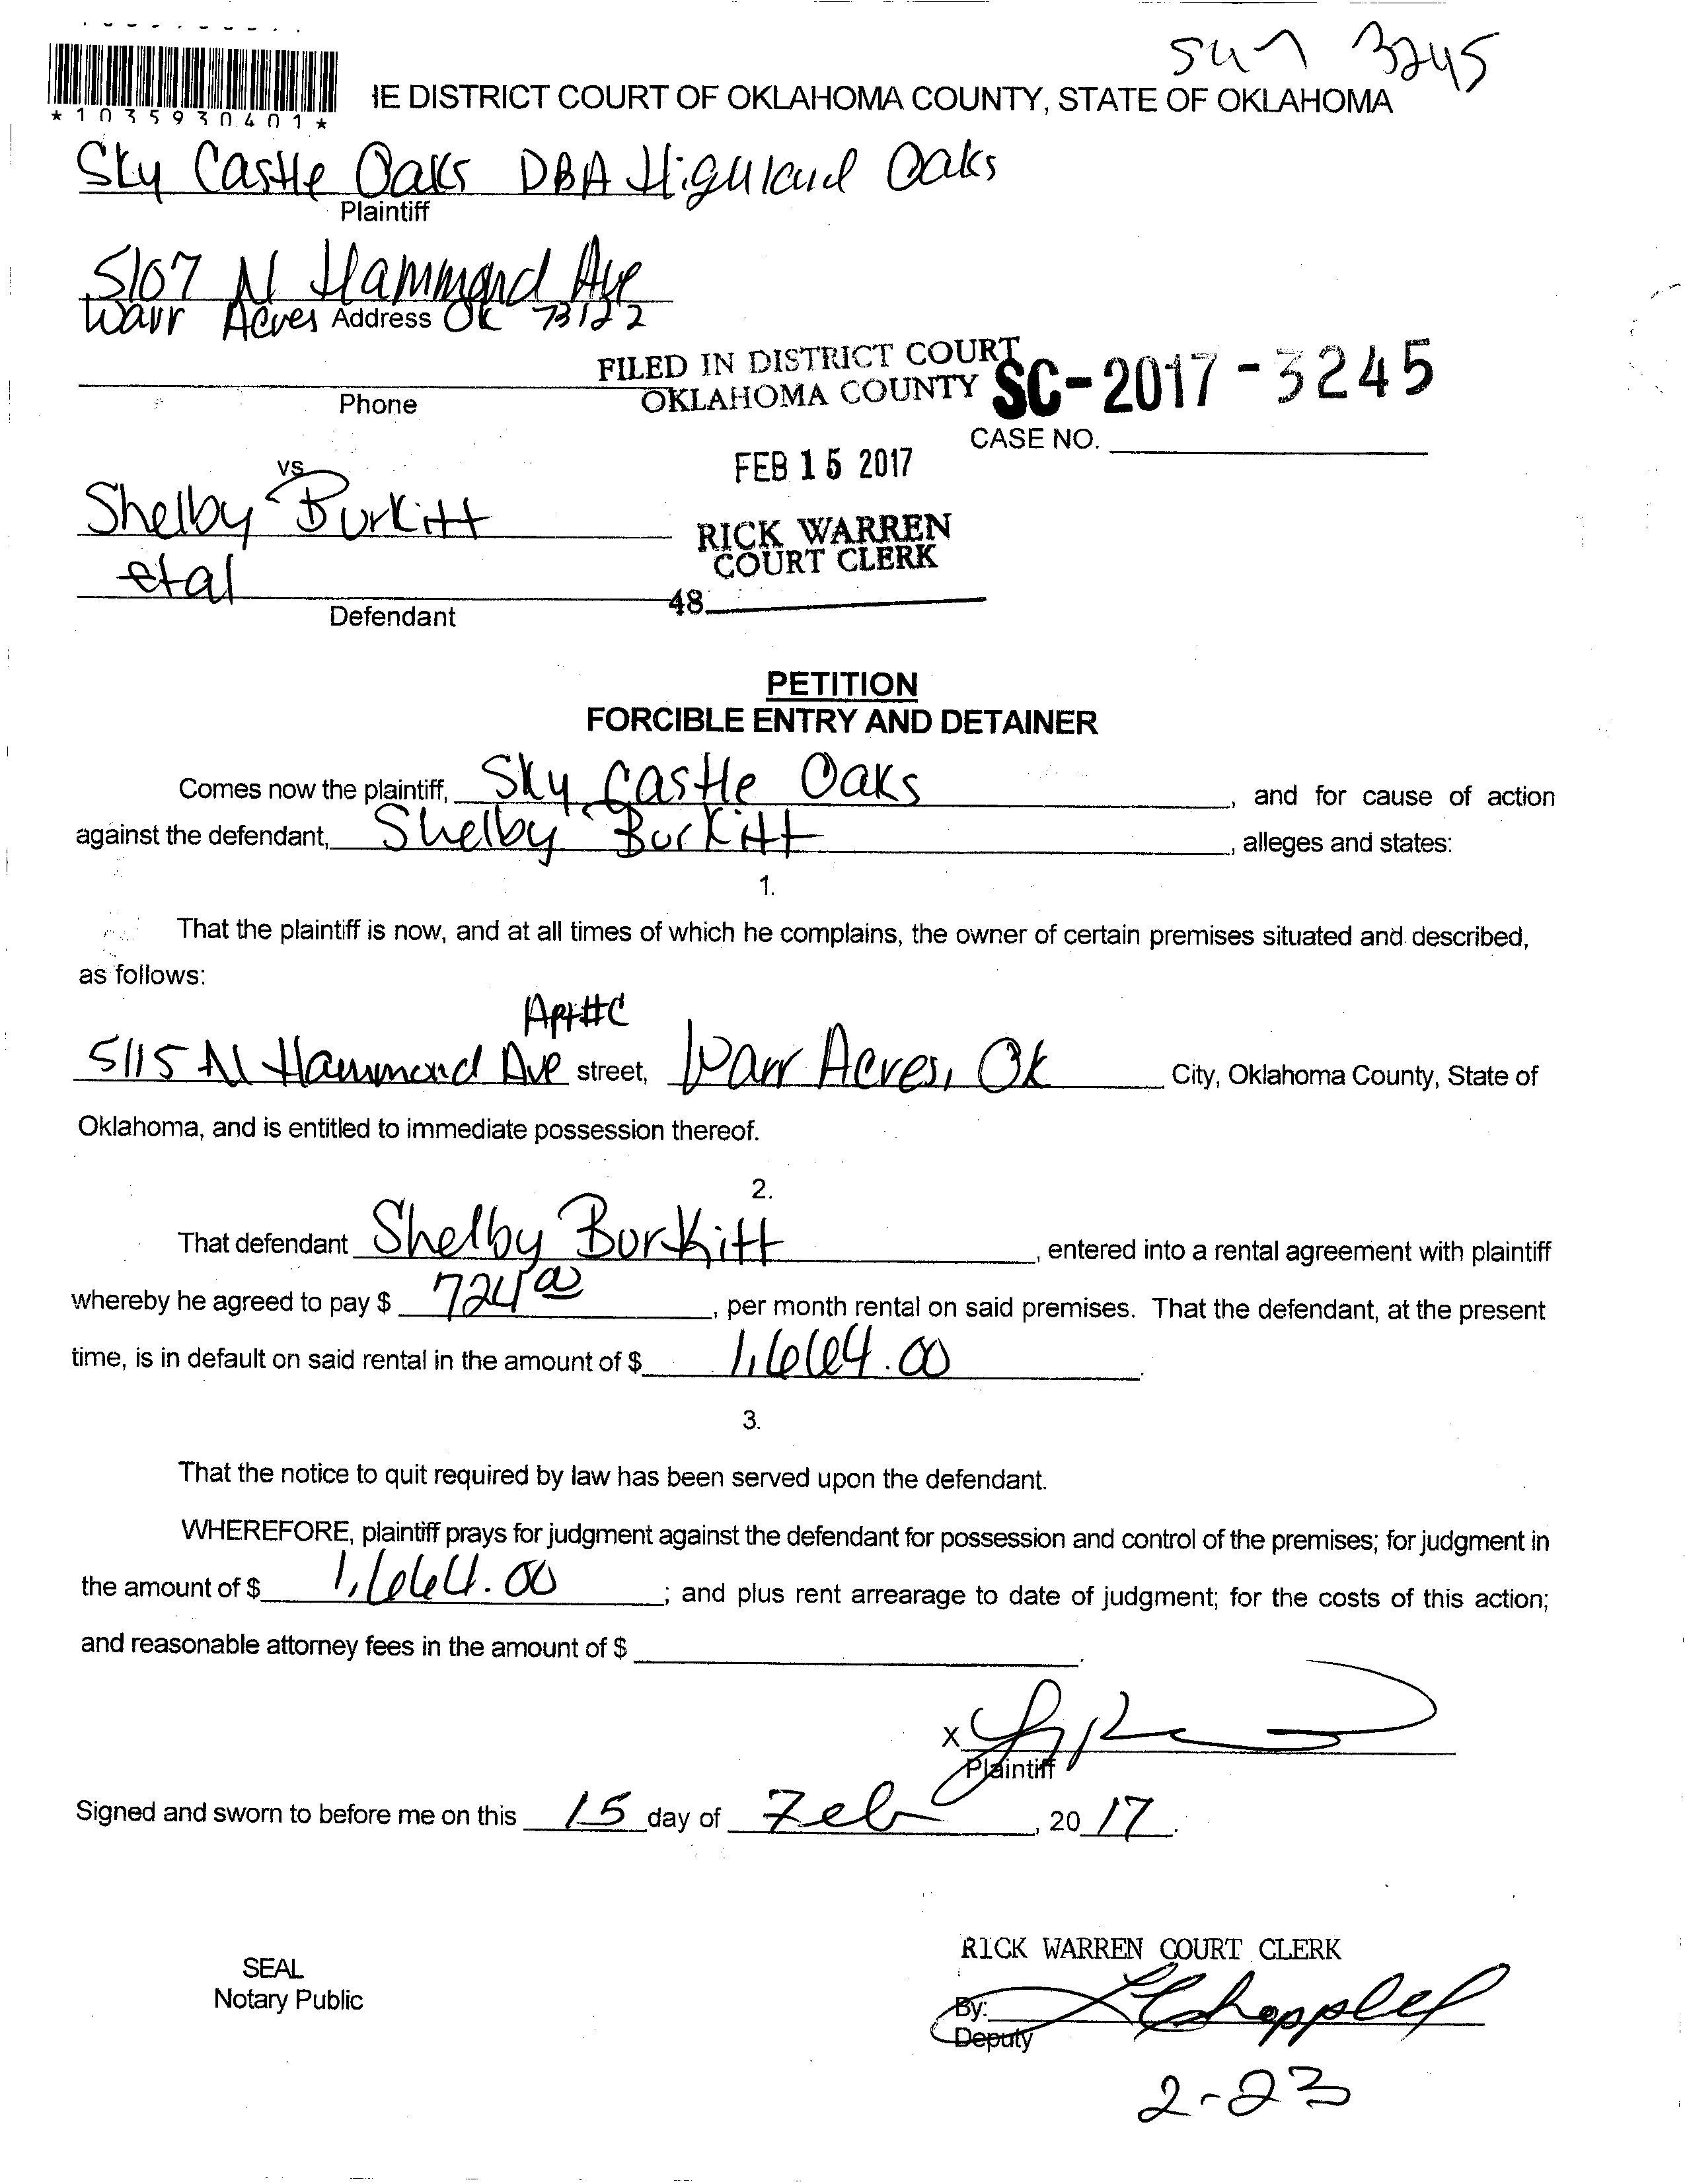 3245
*1035930401*
IE DISTRICT COURT OF OKLAHOMA COUNTY, STATE OF OKLAHOMA
Sky Castle Oaks DBA Highland Oaks
Plaintiff
5107 N Hammond Ave
Warr Acres Address OK 73122
FILED IN DISTRICT COURT
OKLAHOMA COUNTY
SC-2017-3245
Phone
CASE NO.
FEB 15 2017
vs
Shelby Burkitt
RICK WARREN
COURT CLERK
etal
48
Defendant
PETITION
FORCIBLE ENTRY AND DETAINER
Comes now the plaintiff, Sky Castle Oaks, and for cause of action
against the defendant, Shelby Burkitt, alleges and states:
1.
That the plaintiff is now, and at all times of which he complains, the owner of certain premises situated and described,
as follows:
Apt#C
5115 N Hammond Ave street, Warr Acres, Ok City, Oklahoma County, State of
Oklahoma, and is entitled to immediate possession thereof.
2.
That defendant Shelby Burkitt, entered into a rental agreement with plaintiff
whereby he agreed to pay $ 724 00, per month rental on said premises. That the defendant, at the present
time, is in default on said rental in the amount of $ 1,664.00.
3.
That the notice to quit required by law has been served upon the defendant.
WHEREFORE, plaintiff prays for judgment against the defendant for possession and control of the premises; for judgment in
the amount of $ 1,664.00; and plus rent arrearage to date of judgment; for the costs of this action;
and reasonable attorney fees in the amount of $ .
X
Plaintiff
Signed and sworn to before me on this 15 day of Feb, 2017.
RICK WARREN COURT CLERK
SEAL
Notary Public
By:
Deputy
2-23